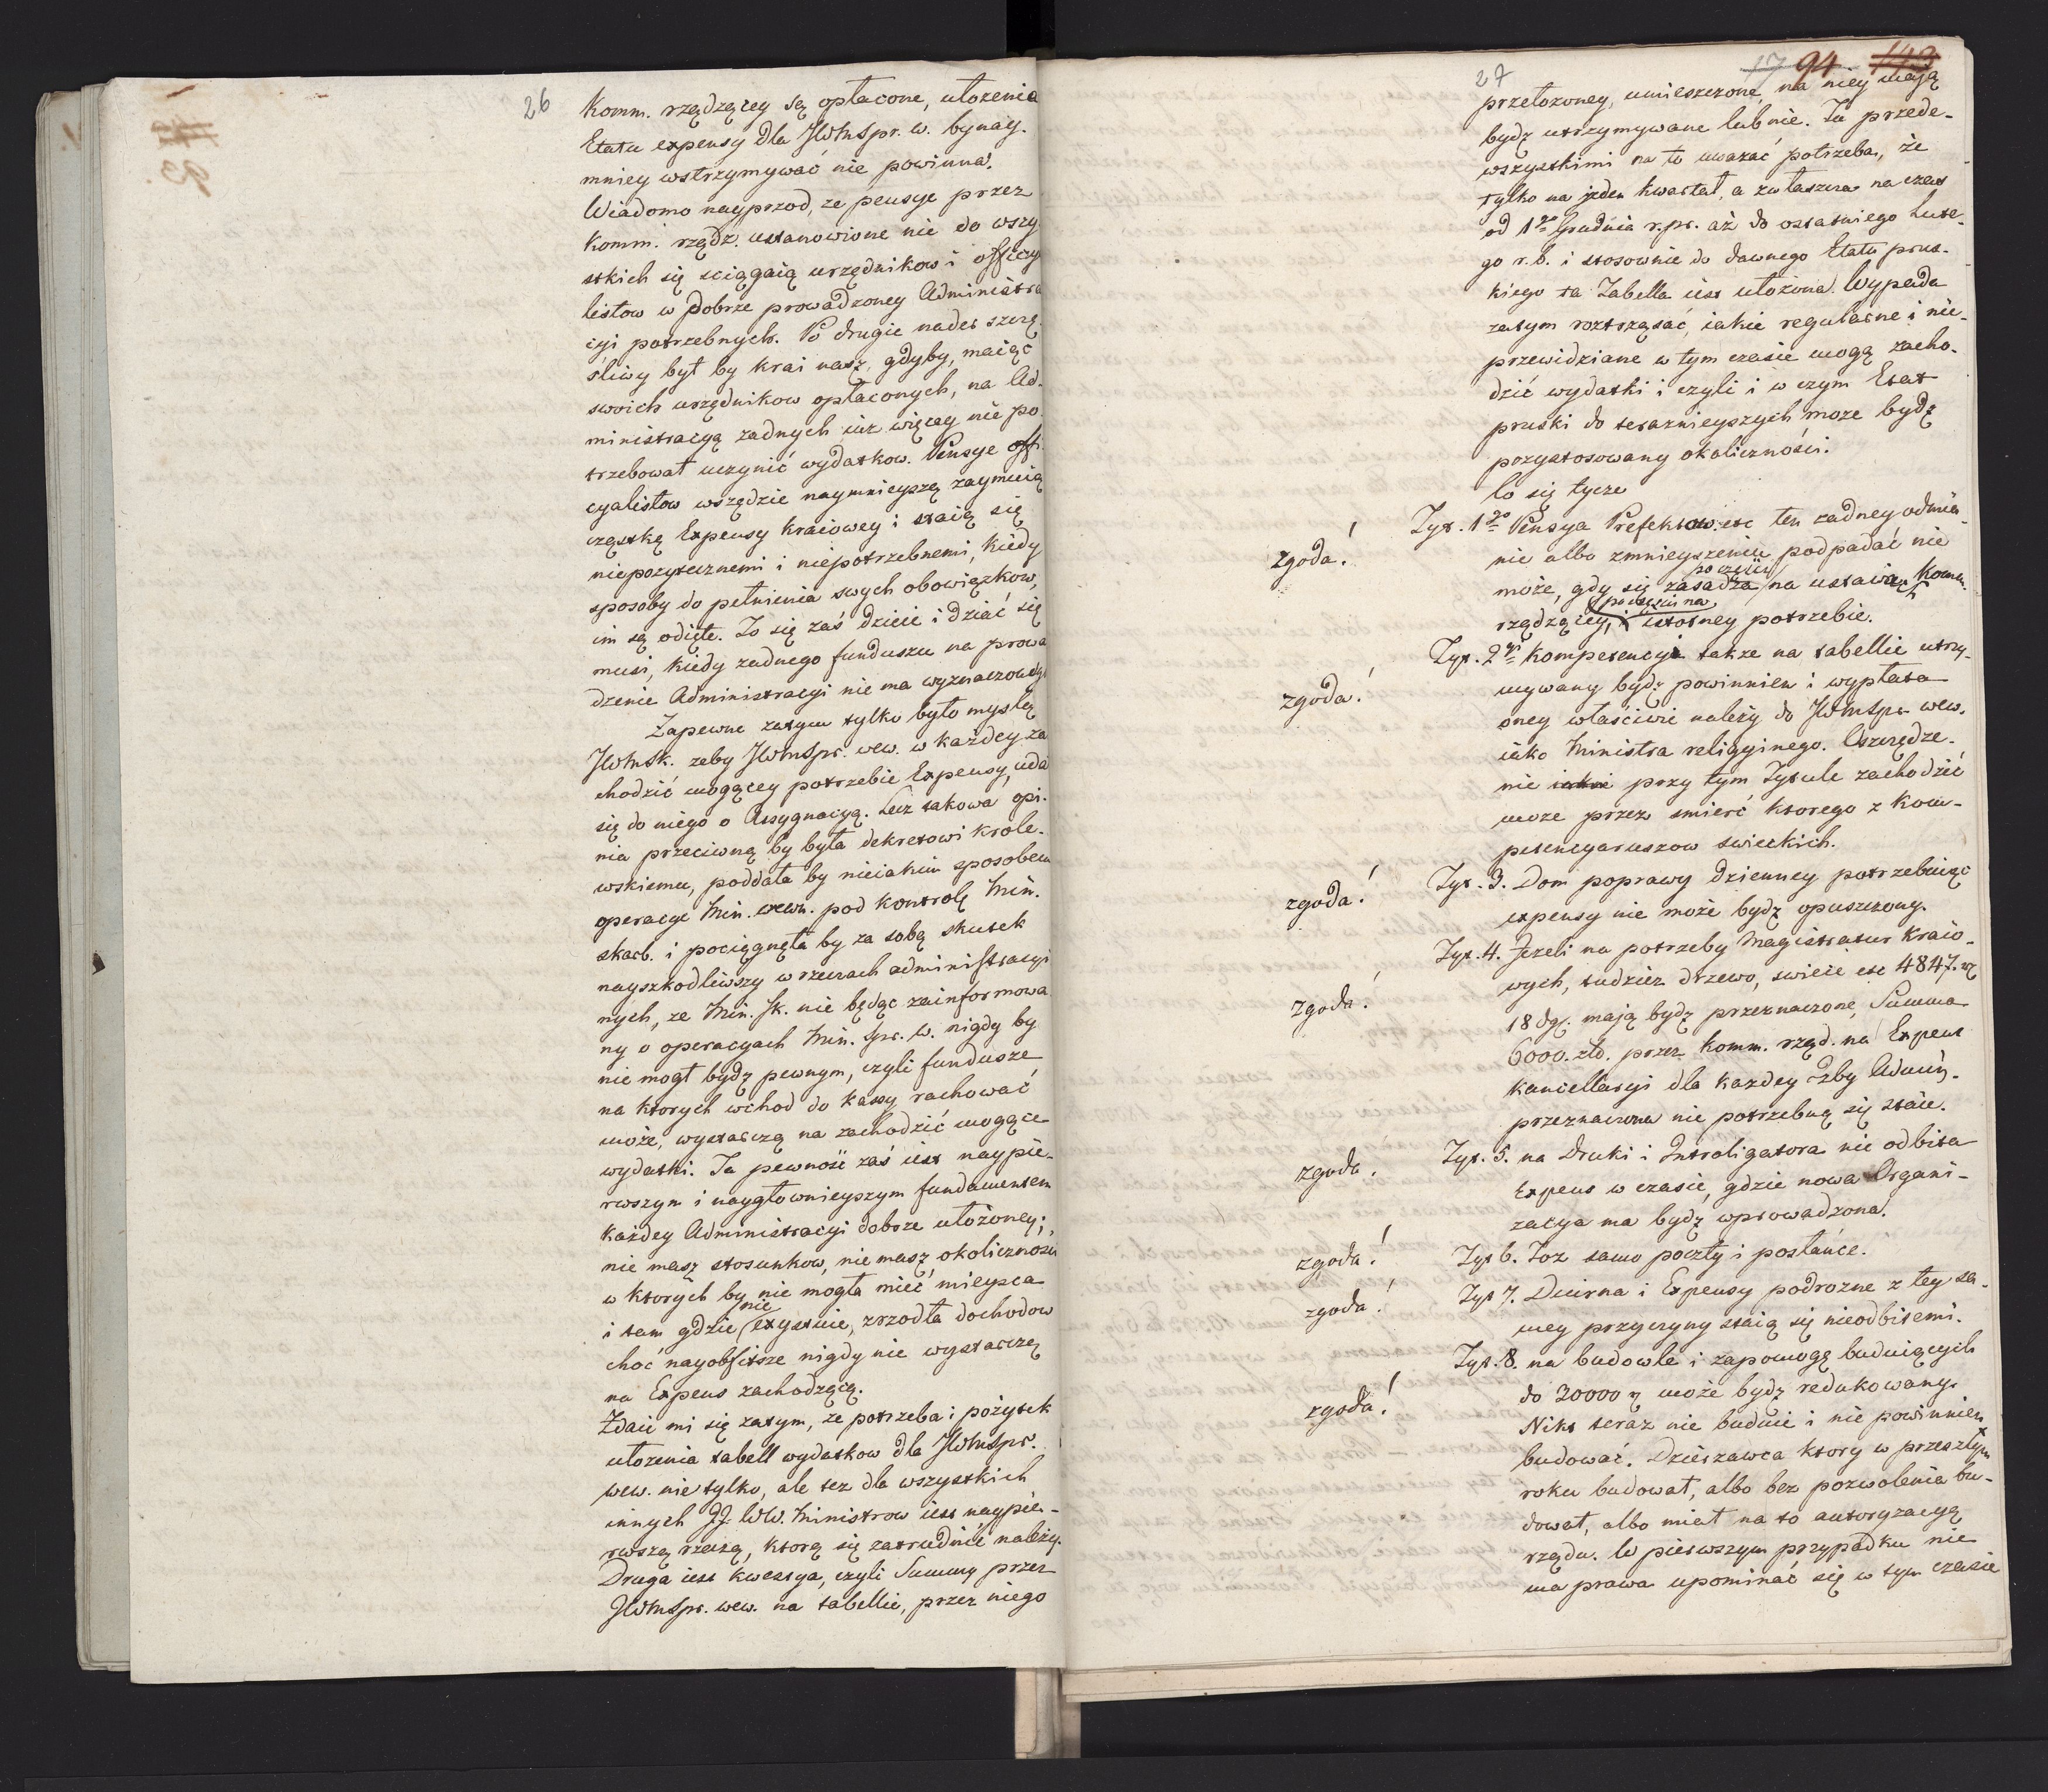 26
Komm. rządzącey są opłacone, ułożenia
Etatu expensy dla JWMSpr. w. bynay-
mniey wstrzymywać nie powinna.
Wiadomo nayprzod, ze pensye przez
Komm. rządz. ustanowione nie do wszy-
stkich się sciągaią urzędnikow i officy
listow w dobrze prowadzoney Administra
cyi potrzebnych. Po drugie nader szczę-
śliwy był by krai nasz, gdyby, maiąc
swoich urzędnikow opłaconych, na Ad-
ministracyą zadnych iuz więcey nie po-
trzebował uczynić wydatkow. Pensye offi-
cyalistow wszędzie naymnieyszą zaymuią
cząstkę Expensy kraiowey i staią się
niepozytecznemi i niepotrzebnemi, kiedy
sposoby do pełnienia swych obowiązkow,
im są odięte. To się zaś dzieie i dziać się
musi, kiedy zadnego funduszu na prowa
dzenie Administracyi nie ma wyznaczonego
Zapewne zatym tylko było myslą
JWMSk. zeby JWMSpr. wew. w każdey za
chodzić mogącey potrzebie Expensy, uda
się do niego o Assygnacyą. Lecz takowa opi-
nia przeciwną by była dekretowi Krole-
wskiemu, poddała by nieiakim sposobem
operacye Min. wewn. pod kontrolę Min.
skarb. i pociągnęła by za sobą skutek
nayszkodliwszy w rzeczach administracyi
nych, ze Min. sk. nie będąc zainformowa
ny o operacyach Min. Spr. w. nigdy by
nie mogł bydz pewnym, czyli fundusze
na ktorych wchod do kassy rachować
może, wystarczą na zachodzić mogące
wydatki. Ta pewność zaś iest naypie-
rwszym i naygłownieyszym fundamentem
każdey Administracyi dobrze ułożoney;
nie masz stosunkow, nie masz okoliczności
w ktorych by nie mogła mieć mieysca
nie
i tam gdzie exystuie, zrzodła dochodow
choć nayobfitsze nigdy nie wystarczą
na Expens zachodzącą.
Zdaie mi się zatym, ze potrzeba i pożytek
ułozenia tabell wydatkow dla JWMSpr.
wew. nie tylko, ale tez dla wszystkich
innych JJ. WW. Ministrow iest naypie-
rwszą rzeczą, ktorą się zatrudnić należy.
Druga iest kwestya, czyli Summy przez
JWMSpr. wew. na tabellie, przez niego
27
17 94 143
przełozoney, umieszczone, na niey maią
bydz utrzymywane lub nie. Tu przede-
wszystkimi na to uwazać potrzeba, że
tylko na jeden kwartał, a zwłaszcza na czas
od 1go Grudnia r. pr. aż do ostatniego Lute-
go r. b. i stosownie do dawnego Etatu prus-
kiego ta Tabella iest ułożona. Wypada
zatym roztrząsać, iakie regularne i nie-
przewidziane w tym czasie mogą zacho-
dzić wydatki i czyli i w czym Etat
pruski do terażnieyszych może bydź
przystosowany okoliczności.
Co się tycze
zgoda!
Tyt. 1go Pensya Prefektow etc ten zadney odmia-
nie albo zmnieyszeniu podpadać nie
po częsci
może, gdy się zasadza na ustawie Komm.
po części na
rządzącey, i istotney potrzebie.
zgoda!
Tyt. 2gi Kompetencyi takze na tabellie utrzy-
mywany bydz powinnien i wypłata
oney właściwie należy do JWMSpr. wew.
iako Ministra religyinego. Oszczędze-
nie przy tym Tytule zachodzić
moze przez smierć ktorego z Kom-
petencyaruszow swieckich.
zgoda!
Tyt. 3. Dom poprawy dzienney potrzebuiąc
expensy nie może bydz opuszczony.
zgoda!
Tyt. 4. Jezeli na potrzeby Magistratur kraio-
wych, tudziez drzewo, swiece etc 4847.
18 dgr. mają bydz przeznaczone, Summa
6000. zło. przez Komm. rząd. na Expens
kancellaryi dla kazdey Izby Admin.
przeznaczona nie potrzebną się staie.
zgoda.
Tyt. 5. na Druki i Introligatora nie odbita
Expens w czasie, gdzie nowa Organi-
zacya ma bydz wprowadzona.
zgoda!
Tyt 6. Toz samo poczty i posłańce.
zgoda!
Tyt 7. Diurna i Expensy podrozne z tey sa-
mey przyczyny staią się nieodbitemi.
zgoda!
Tyt. 8. na budowle i zapomogę buduiących
do 30000 może bydz redukowany.
Nikt teraz nie buduie i nie powinnien
budować. Dzierzawca ktory w przeszłym
roku budował, albo bez pozwolenia bu-
dował, albo miał na to autoryzacyą
rządu. W pierwszym przypadku nie
ma prawa upominać się w tym czasie